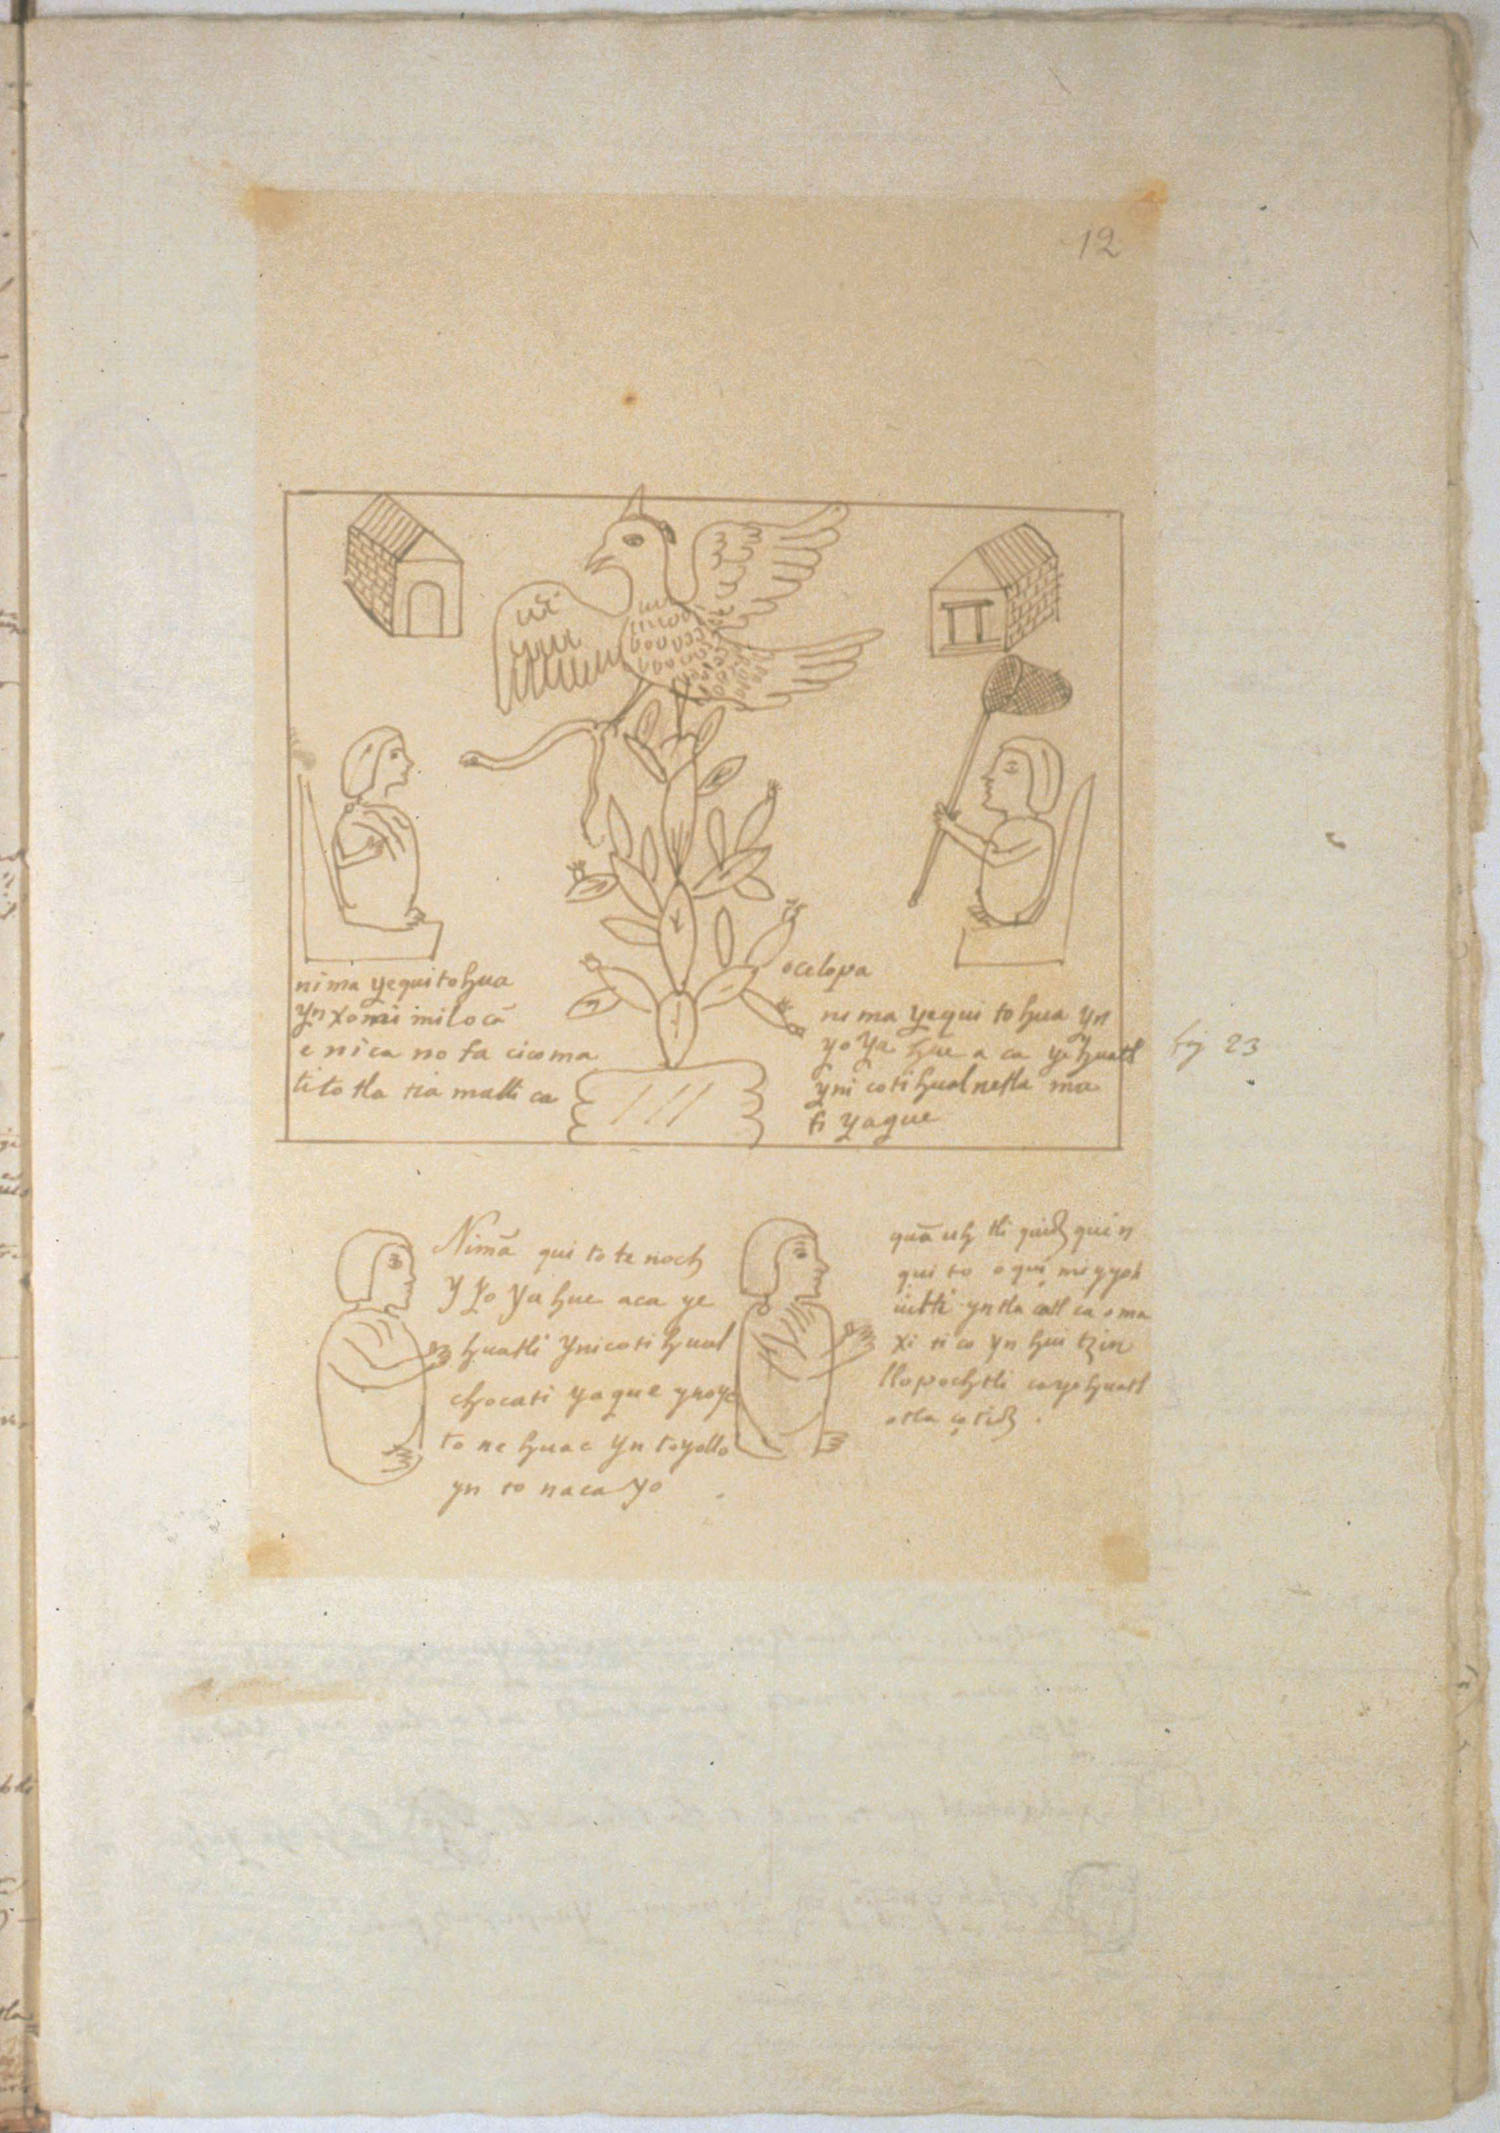 12
nima yequitohua
yn xomi milocā
e nica no ta cicoma
ti to tla tia malli ca
ocelopa
nima yequi tohua yn
yo ya hue a ca yehuatl
yni coti hual netla ma
ti yaque
fig 23
Nimā qui to te noch
y yo ya hue aca ye
huatli ynicoti hual
chocati yaque ynoye
to ne huac yn toyollo
yn to naca yo
quā uh tli quin
qui to oqui
iutli yntla catl ca oma
xi ti co yn hui tzin
llopochtli cayehuatl
otla